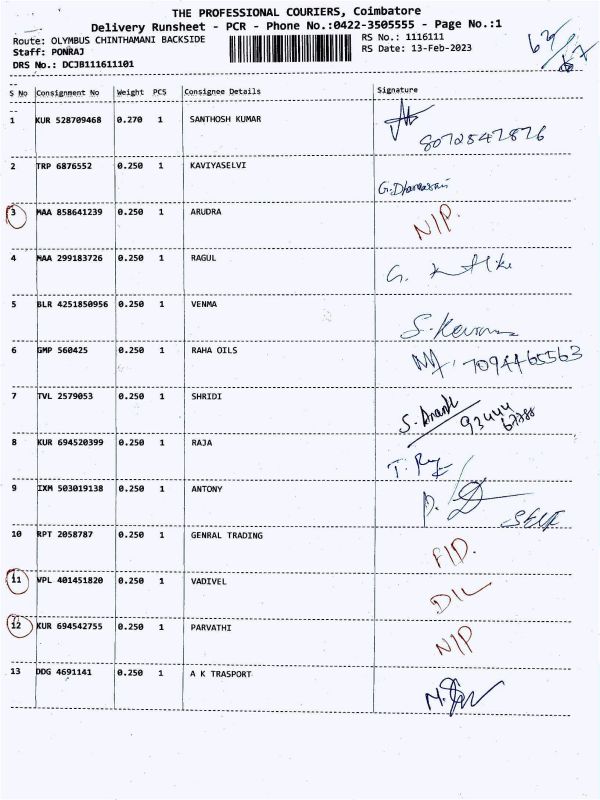 THE PROFESSIONAL COURIERS, Coimbatore
Delivery Runsheet - PCR - Phone No.:0422-3505555 - Page No.:1
Route: OLYMBUS CHINTHAMANI BACKSIDE RS No.: 1116111
Staff: PONRAJ RS Date: 13-Feb-2023
DRS No.: DCJB111611101
S No Consignment No Weight PCS Consignee Details Signature
1 KUR 528709468 0.270 1 SANTHOSH KUMAR
8072547876
2 TRP 6876552 0.250 1 KAVIYASELVI
3 MAA 858641239 0.250 1 ARUDRA N/P.
4 MAA 299183726 0.250 1 RAGUL
5 BLR 4251850956 0.250 1 VENMA
6 GMP 560425 0.250 1 RAHA OILS 7094465563
7 TVL 2579053 0.250 1 SHRIDI S. Anand
93444
67788
8 KUR 694520399 0.250 1 RAJA
9 IXM 503019138 0.250 1 ANTONY
SELF
10 RPT 2058787 0.250 1 GENRAL TRADING F/D.
11 VPL 401451820 0.250 1 VADIVEL D/L
12 KUR 694542755 0.250 1 PARVATHI N/P
13 DDG 4691141 0.250 1 A K TRASPORT